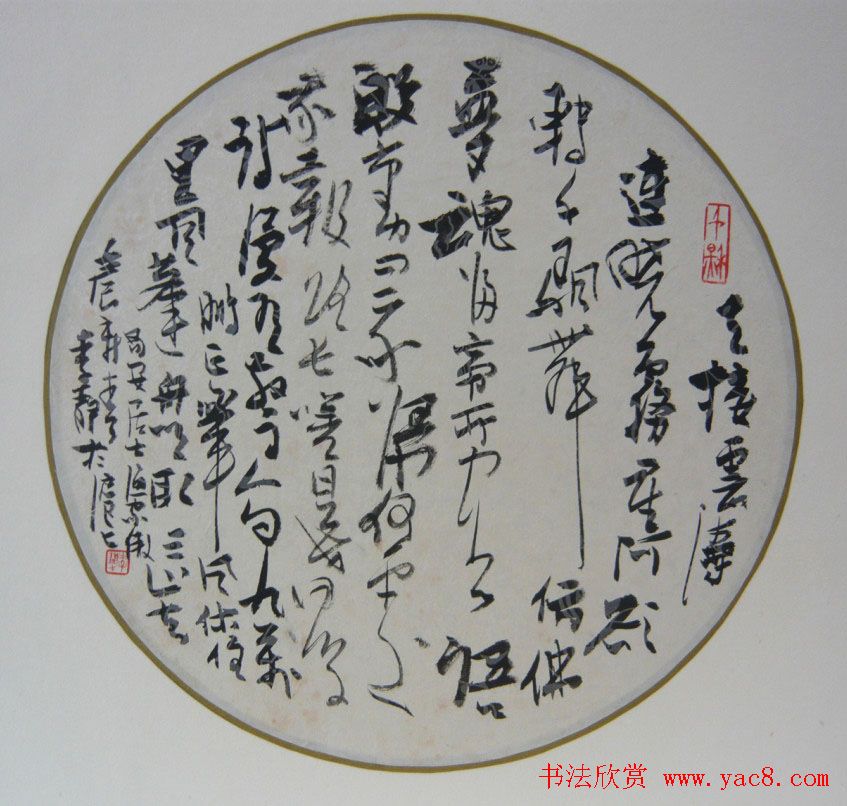 天接雲濤
連曉霧星河欲
轉千帆舞彷彿
夢魂歸帝所聞天語
殷勤問我歸何處
我報路長嗟日暮學
詩謾有驚人句九萬
里風鵬正舉風休住
蓬舟吹取三山去
易安居士漁家傲
靜於滬上
书法欣赏 www.yac8.com